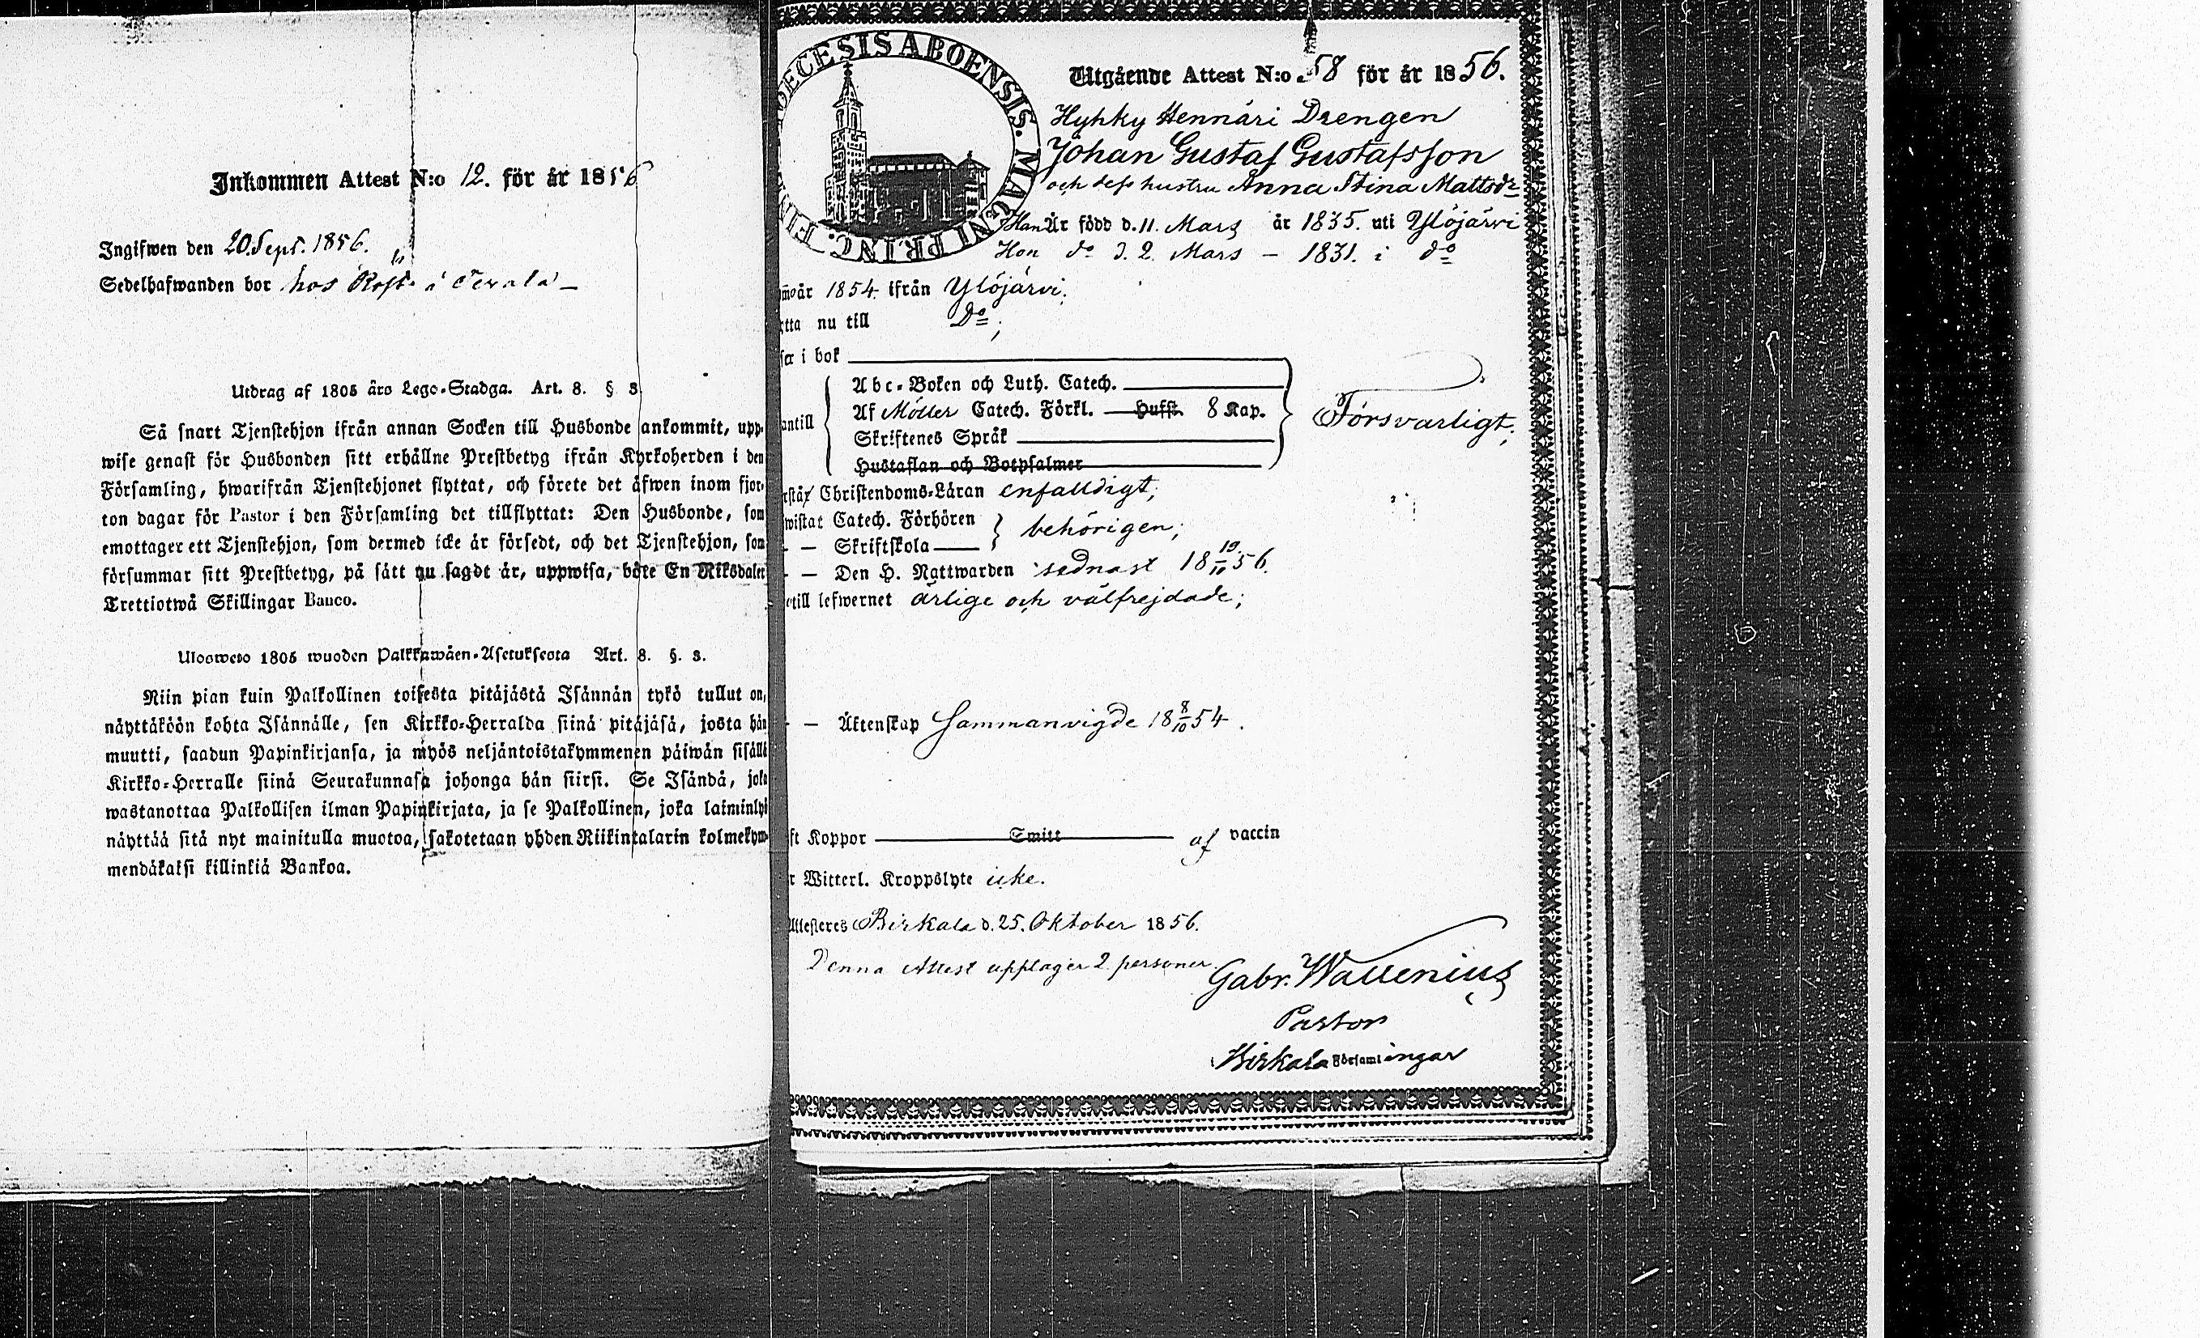 Inkommen Attest N:o 12. för år 1856
Ingifwen den 20. Sept. 1856.
Sedelhafwanden bor hos
Utdrag af 1805 års Lego-Stadga. Art. 8. § 3.
Så snart Tjenstehjon ifrån annan Socken till Husbonde ankommit, upp-
wise genast för Husbonden sitt erhållne Prestbetyg ifrån Kyrkoherden i den
Församling, hwarifrån Tjenstehjonet flyttat, och förete det äfwen inom fjor-
ton dagar för Pastor i den Församling det tillflyttat: Den Husbonde, som
emottager ett Tjenstehjon, som dermed icke är försedt, och det Tjenstehjon, som
försummar sitt Prestbetyg, på sätt nu sagdt är, uppwisa, böte En Riksdaler
Trettiotwå Skillingar Banco.
Ulosweto 1805 wuoden Palkkawäen-Asetuksesta Art. 8. §. 3.
Niin pian kuin Palkollinen toisesta pitäjästä Isännän tykö tullut on,
näyttäköön kohta Isännälle, sen Kirkko-Herralda siinä pitäjäsä, josta hän
muutti, saadun Papinkirjansa, ja myös neljäntoistakymmenen päiwän sisällä
Kirkko-Herralle siinä Seurakunnasa johonga hän siirsi. Se Isändä, joka
wastanottaa Palkollisen ilman Papinkirjata, ja se Palkollinen, joka laiminlyö
näyttää sitä nyt mainitulla muotoa, sakotetaan yhden Riikintalarin kolmekym-
mendäkaksi killinkiä Bankoa.
DECESIS ABOENSIS. MAGNI PRINC. FIN
Utgående Attest N:o 58 för år 1856.
Hyhky Hennäri Drengen
Johan Gustaf Gustafsson
och dess hustru Anna Stina Mattsdr
Han Är född d. 11. Mars år 1835. uti Ylöjärvi
Hon do d. 2. Mars – 1831. i do
år 1854. ifrån Ylöjärvi.
tta nu till Do;
ser i bok
Abc-Boken och Luth. Catech.
antill Af Möller Catech. Förkl. Hufst. 8 Kap. Försvarligt;
Skriftenes Språk
Hustaflan och Botpsalmer
rstår Christendoms-Läran enfalldigt;
wistat Catech. Förhören behörigen;
– – Skriftskola
– – Den H. Nattwarden sednast 18 19/10 56.
till lefwernet ärlige och välfrejdade;
– – Äktenskap Sammanvigde 18 8/10 54.
ft Koppor Smitt af vaccin
r Witterl. Kroppslyte icke.
Attesteres Birkala d. 25. Oktober 1856.
Denna Attest upptager 2 personer.
Gabr. Wallenius
Pastor
Birkala Församlingar